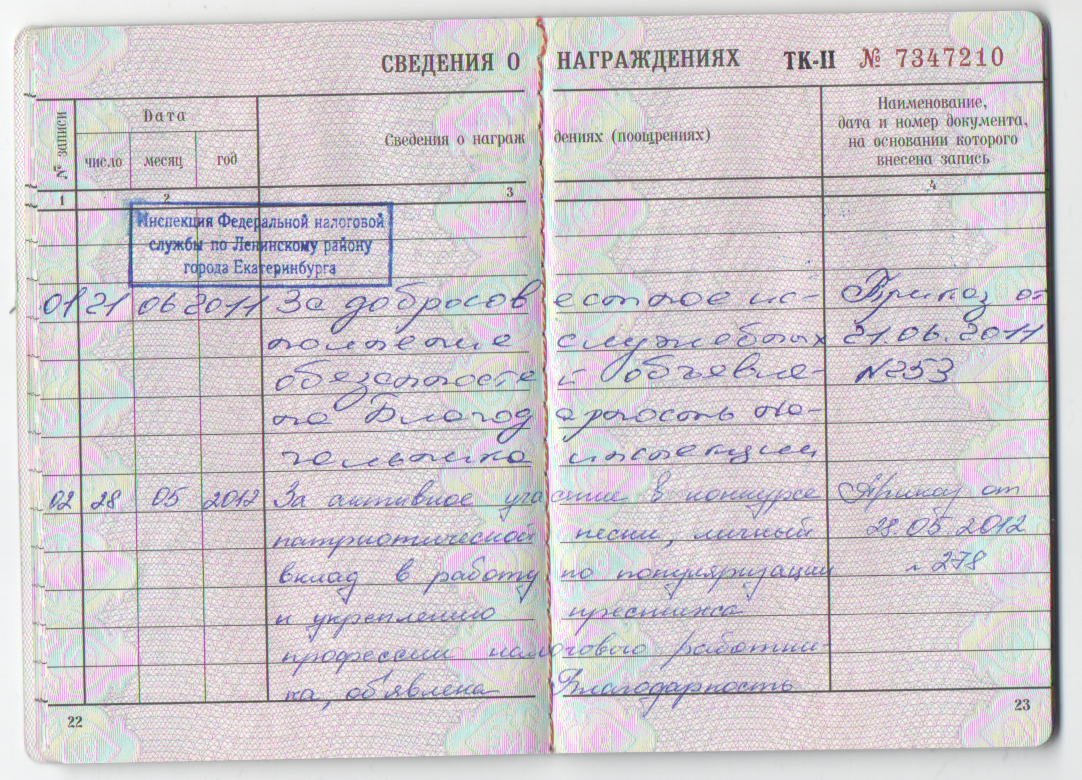 СВЕДЕНИЯ О НАГРАЖДЕНИЯХ ТК-II № 7347210
№ записи
Дата
число месяц год
Сведения о награждениях (поощрениях)
Наименование,
дата и номер документа,
на основании которого
внесена запись
1 2 3 4
Инспекция Федеральной налоговой
службы по Ленинскому району
города Екатеринбурга
01 21 06 2011 За добросовестное ис- Приказ от
полнение служебных 21.06.2011
обязанностей объявле- №253
на Благодарность на-
чальника инспекции
02 28 05 2012 За активное участие в конкурсе Приказ от
патриотической песни, личный 28.05.2012
вклад в работу по популяризации 278
и укреплению престижа
профессии налогового работни-
ка, объявлена Благодарность
22 23